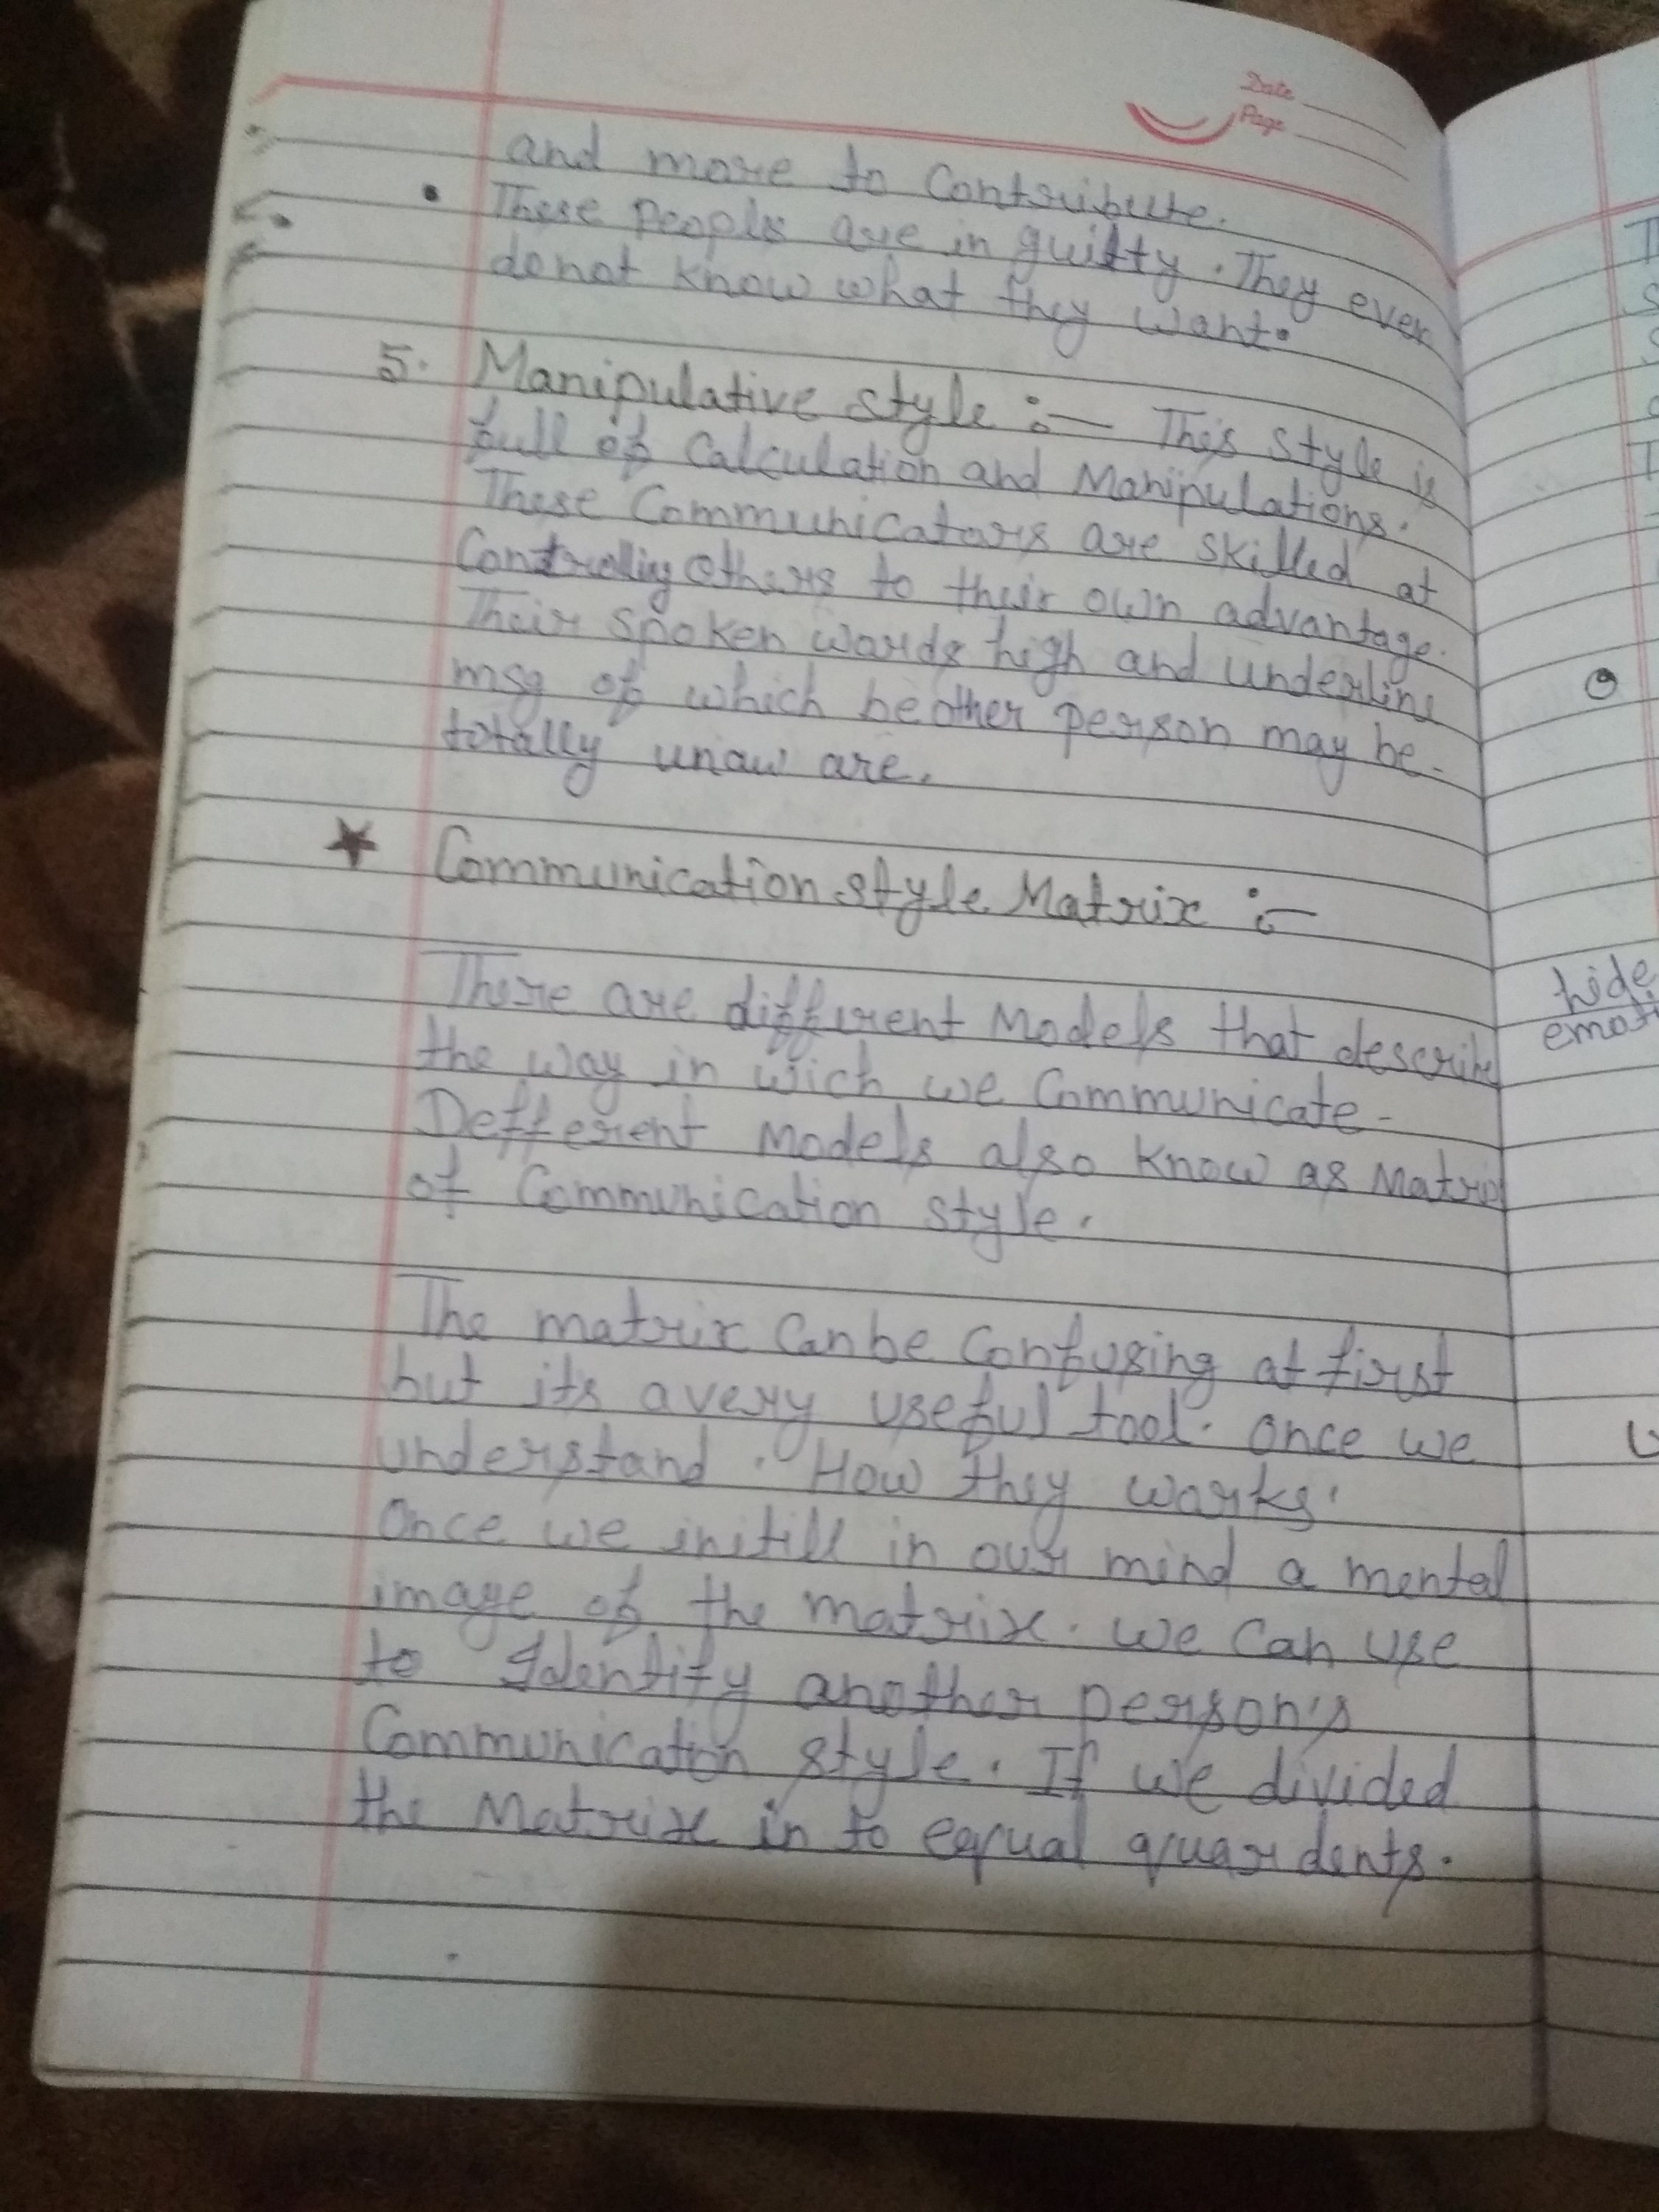 Date
Page
and more to Contribute.
• These peoples are in guilty. They even
do not know what they want.
5. Manipulative style :- This style is
full of Calculation and Manipulations.
These Communicators are skilled at
Controlling others to their own advantage.
Their spoken words high and underline
msg of which be other person may be
totally unaw are.
★ Communication style Matrix :-
There are different Models that describe
the way in wich we Communicate-
Defferent Models also know as Matrix
of Communication style.
The matrix Can be Confusing at first
but its a very useful tool. once we
understand. How they works.
Once we initill in our mind a mental
image of the matrix. we can use
to Identify another person's
Communication style. If we divided
the Matrix in to equal quardents.
hide